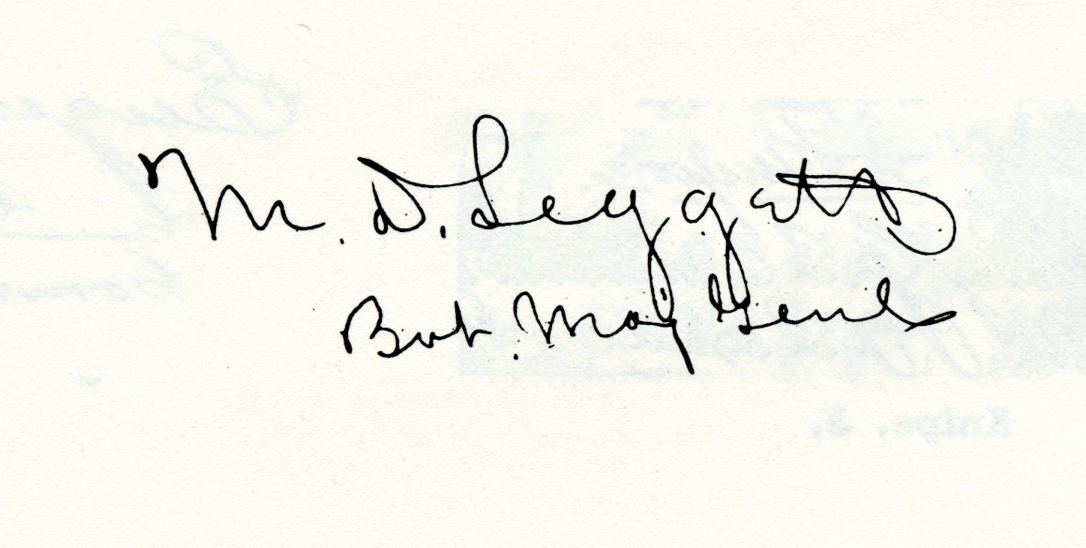 M. D. Leggett
Bvt. Maj Genl
Knipe, J.